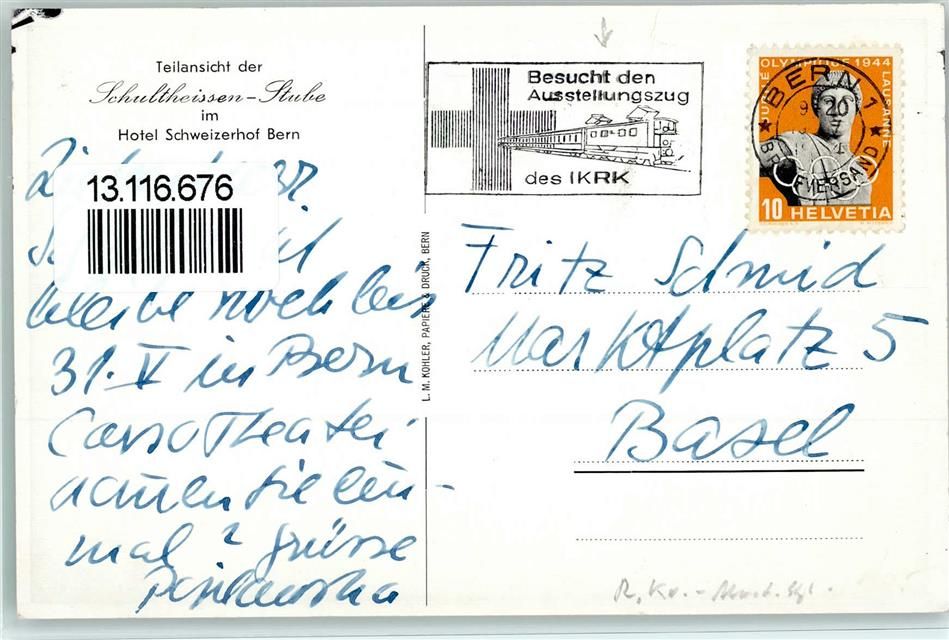 Teilansicht der
Schultheissen-Stube
im
Hotel Schweizerhof Bern
13.116.676
bleibe noch bis
31. V in Bern
Corso Theater
kommen Sie ein-
mal? Grüsse
L. M. KOHLER, PAPIERE & DRUCK, BERN
Besucht den
Ausstellungszug
des IKRK
BERN 1
BRIEFVERSAND
JUBILÉ OLYMPIQUE 1944
LAUSANNE
10 HELVETIA
Fritz Schmid
Marktplatz 5
Basel